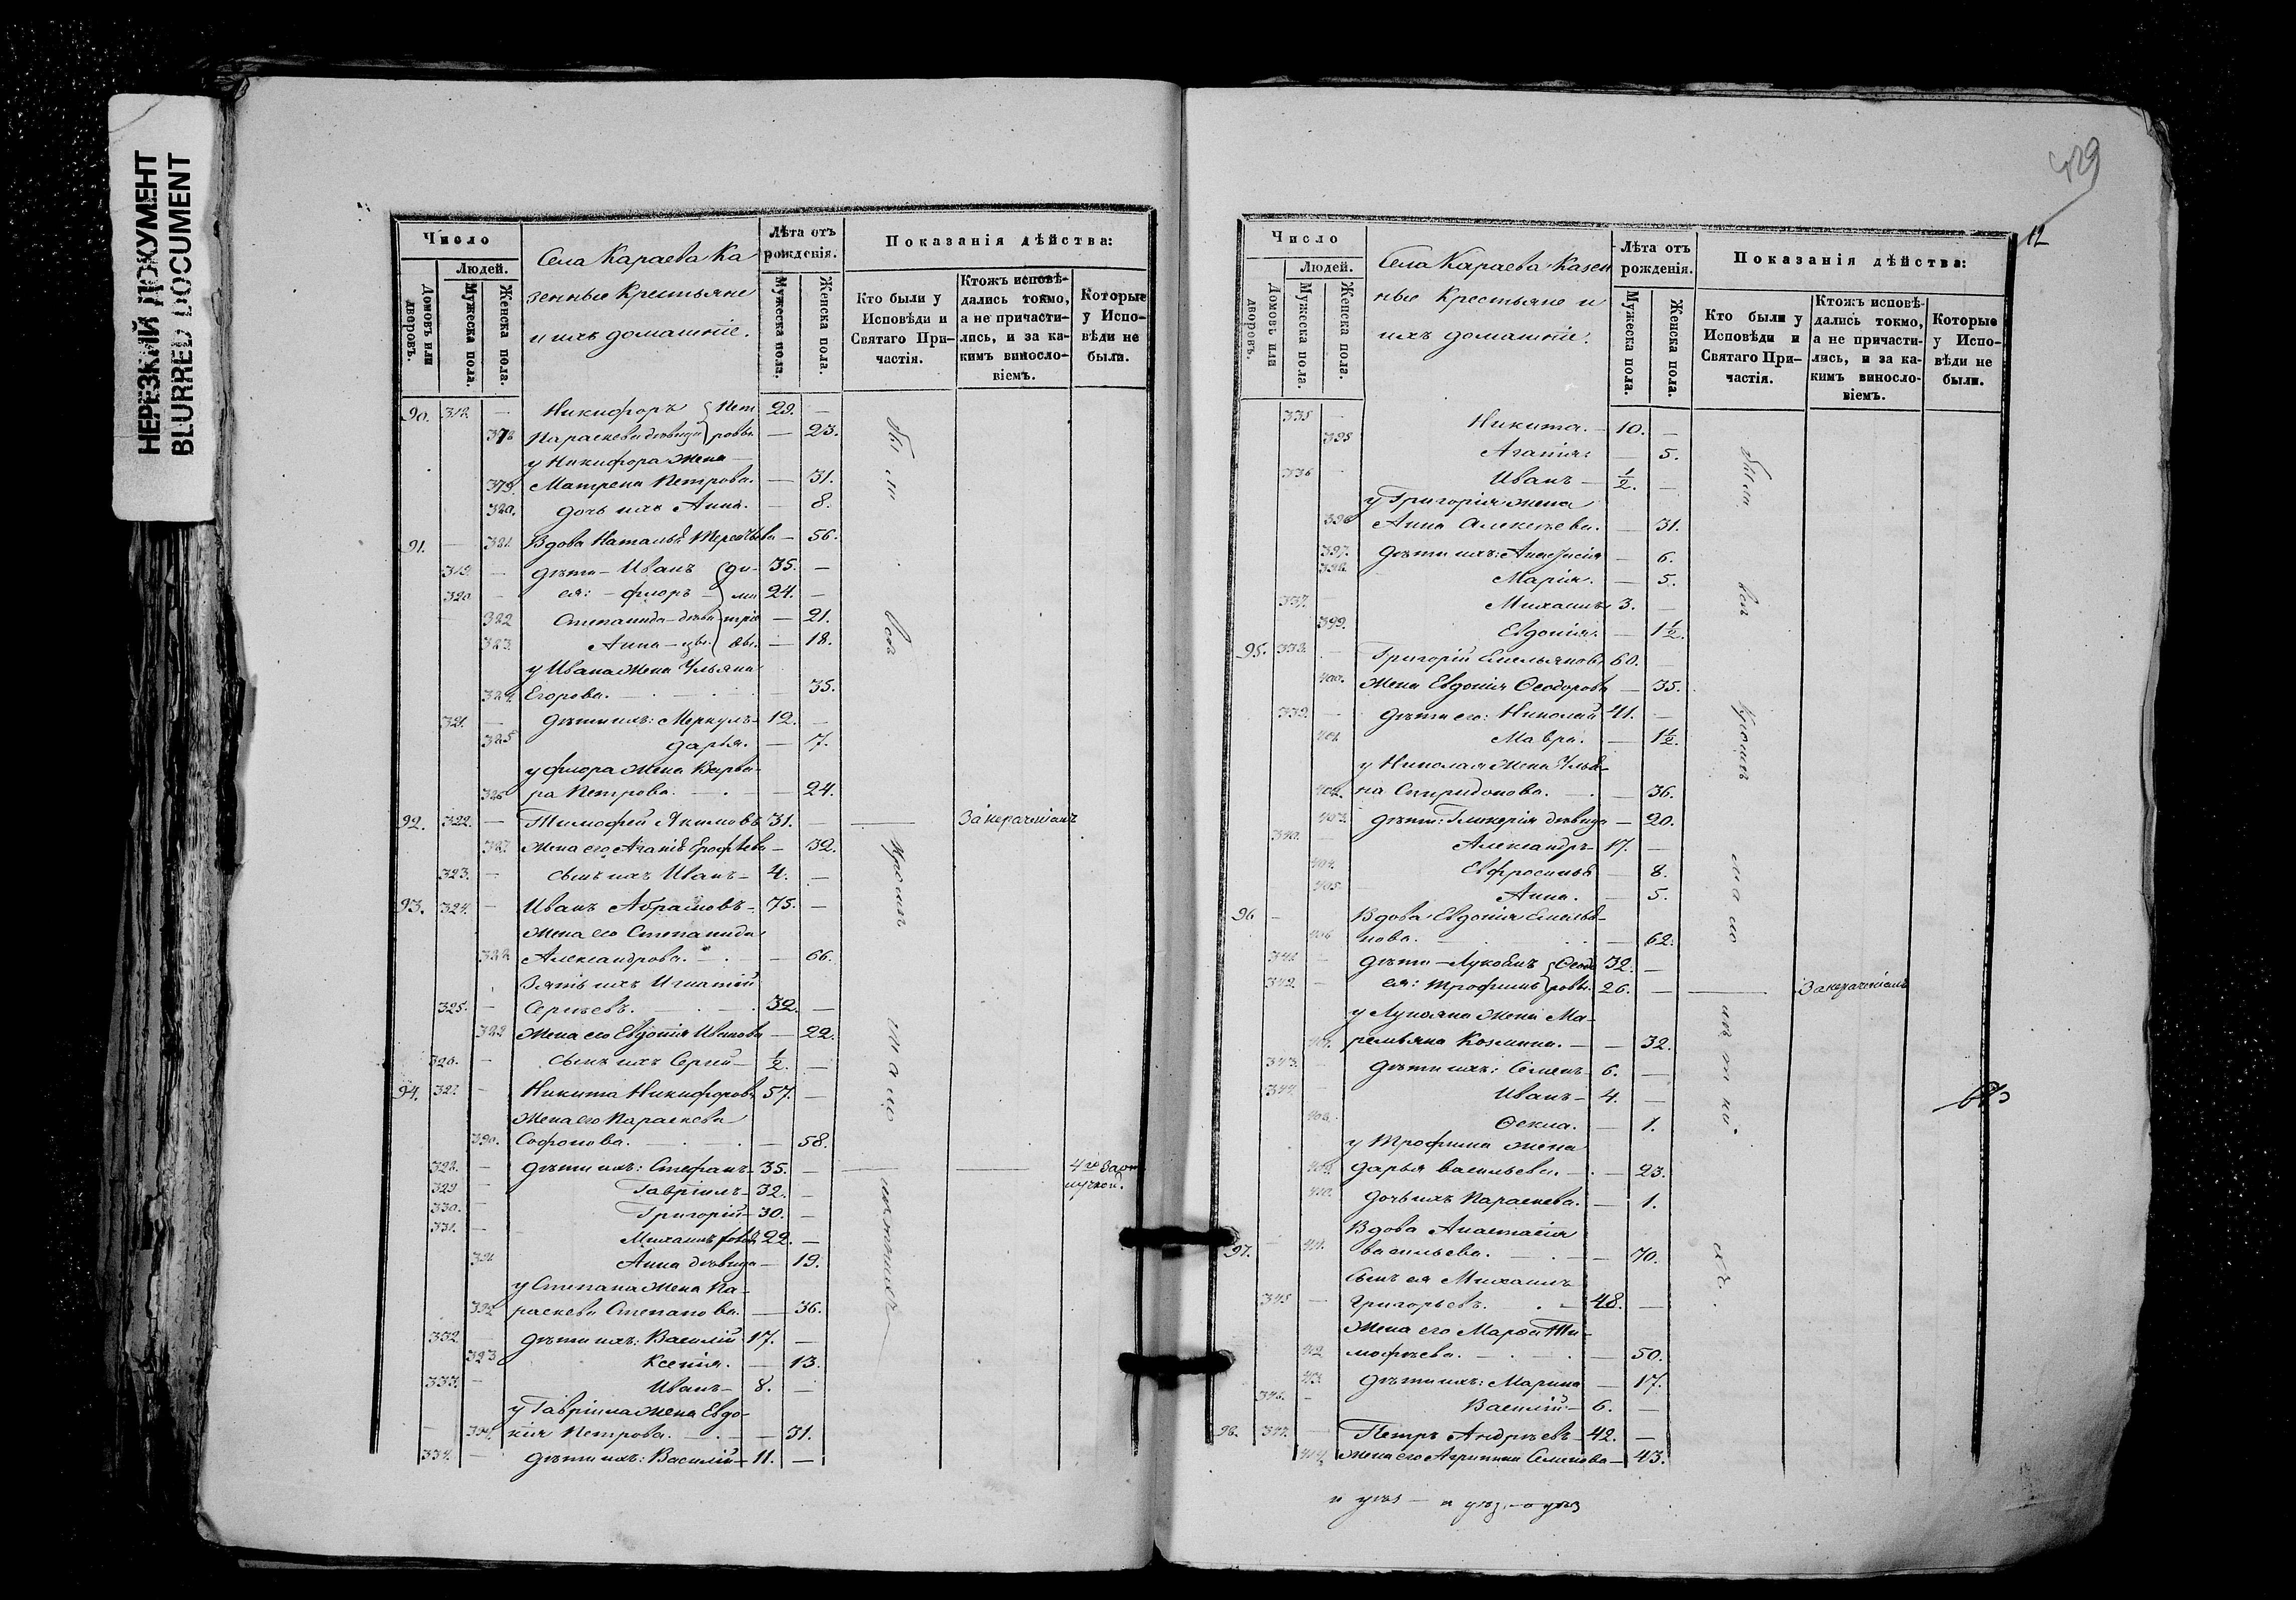 НЕРЕЗКИЙ ДОКУМЕНТ
BLURRED DOCUMENT
Число
Людей.
Домовъ или дворовъ.
Мужеска пола.
Женска пола.
Села Караева Ка
зенные Крестьяне
и ихъ домашніе.
Лѣта отъ рожденія.
Мужеска пола.
Женска пола.
Показанія дѣйства:
Кто были у Исповѣди и Святаго Причастія.
Ктожъ исповѣдались токмо, а не причастились, и за какимъ винословіемъ.
Которые у Исповѣди не были.
90. 318. — Никифоръ } Пет 29. —
378 Параскева девица } ровы — 23.
у Никифора жена
379. Матрена Петрова. — 31.
320. дочь ихъ Анна. — 8.
91. — 321. Вдова Наталья Терентьева — 56.
319. — дѣти — Иванъ { Ди- 35. —
320 — ея: — Флоръ — ми 24. —
322 Степанида — девка трі — 21.
323 Анна — евы. — 18.
у Ивана жена Ульяна
324. Егорова. 35.
321. — дѣти ихъ: Меркулъ — 12. —
325 Дарья. — 7.
у Флора жена Варва-
326 ра Петрова. — 24.
92. 322. — Тимофей Якимовъ 31. — За нераченіемъ
327. жена его Агапія Ерофѣева — 32.
323. — сынъ ихъ Иванъ — 4. —
93. 324. — Иванъ Абрамовъ — 75. —
жена его Степанида
Александрова. — 66.
Зять ихъ Игнатій
325. — Сергѣевъ. 32. —
жена его Евдокія Иванова — 22.
326. — сынъ ихъ Сергій — ½. —
94. 327. — Никита Никифоровъ 57. —
жена его Параскева
390. Софонова. — 58.
328. — дѣти ихъ: Стефанъ — 35. —
329 — Гавріилъ — 32. —
330. — Григорій — 30. —
331. — Михаилъ 22. —
Анна девица — 19.
у Степана жена Па-
392 раскева Степанова. — 36.
332. — дѣти ихъ: Василій 17. —
Ксенія. — 13.
333. — Иванъ — 8. —
у Гавріила жена Евдо-
394. кія Петрова. — 31.
334. — дѣти ихъ: Василій — 11. —
12
Число
Людей.
Домовъ или дворовъ.
Мужеска пола.
Женска пола.
Села Караева Казен
ные Крестьяне и
ихъ домашніе.
Лѣта отъ рожденія.
Мужеска пола.
Женска пола.
Показанія дѣйства:
Кто были у Исповѣди и Святаго Причастія.
Ктожъ исповѣдались токмо, а не причастились, и за какимъ винословіемъ.
Которые у Исповѣди не были.
335 — Никита. — 10. —
395 Агапія: — 5.
336 — Иванъ — ½. —
у Григорія жена
396 Анна Алексѣева. — 31.
397. дѣти ихъ: Анастасія — 6.
398. Марія. — 5.
337. Михаилъ 3. —
399. Евдокія. — 1½.
95. 338. — Григорій Емельяновъ 60. —
400. жена Евдокія Ѳеодорова — 35.
339. — дѣти его: Николай 41. —
401. Мавра. — 1½.
у Николая жена Улья-
402. на Спиридонова. — 36.
403. дѣти: Гликерія девица — 20.
340. — Александръ — 17. —
404. Евфросинья — 8.
405. Анна. — 5.
96 — Вдова Евдокія Емелья-
406 нова. — 62.
341 — дѣти — Лукьянъ { Ѳеодо 32. —
342. — ея: Трофимъ } ровы. 26. — За нераченіемъ
у Лукьяна жена Ма-
407. ремьяна Козмина. — 32.
343. — дѣти ихъ: Семенъ 6. —
344. — Иванъ — 4. —
408. Ѳекла. — 1.
у Трофима жена
409. Дарья Васильева. — 23.
410. дочь ихъ Параскева. — 1.
Вдова Анастасія
97. — 411. Васильева. — 70.
сынъ ея Михаилъ
345 — Григорьевъ. 48. —
жена его Марѳа Ти-
412 мофѣева. — 50.
413. дѣти ихъ: Марина — 17.
346. — Василій — 6. —
98. 347. — Петръ Андрѣевъ — 42. —
414. жена его Агрипина Семенова — 43.